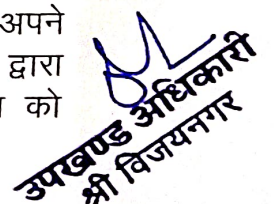 अपने
द्वारा
को
उपखण्ड अधिकारी
श्री विजयनगर